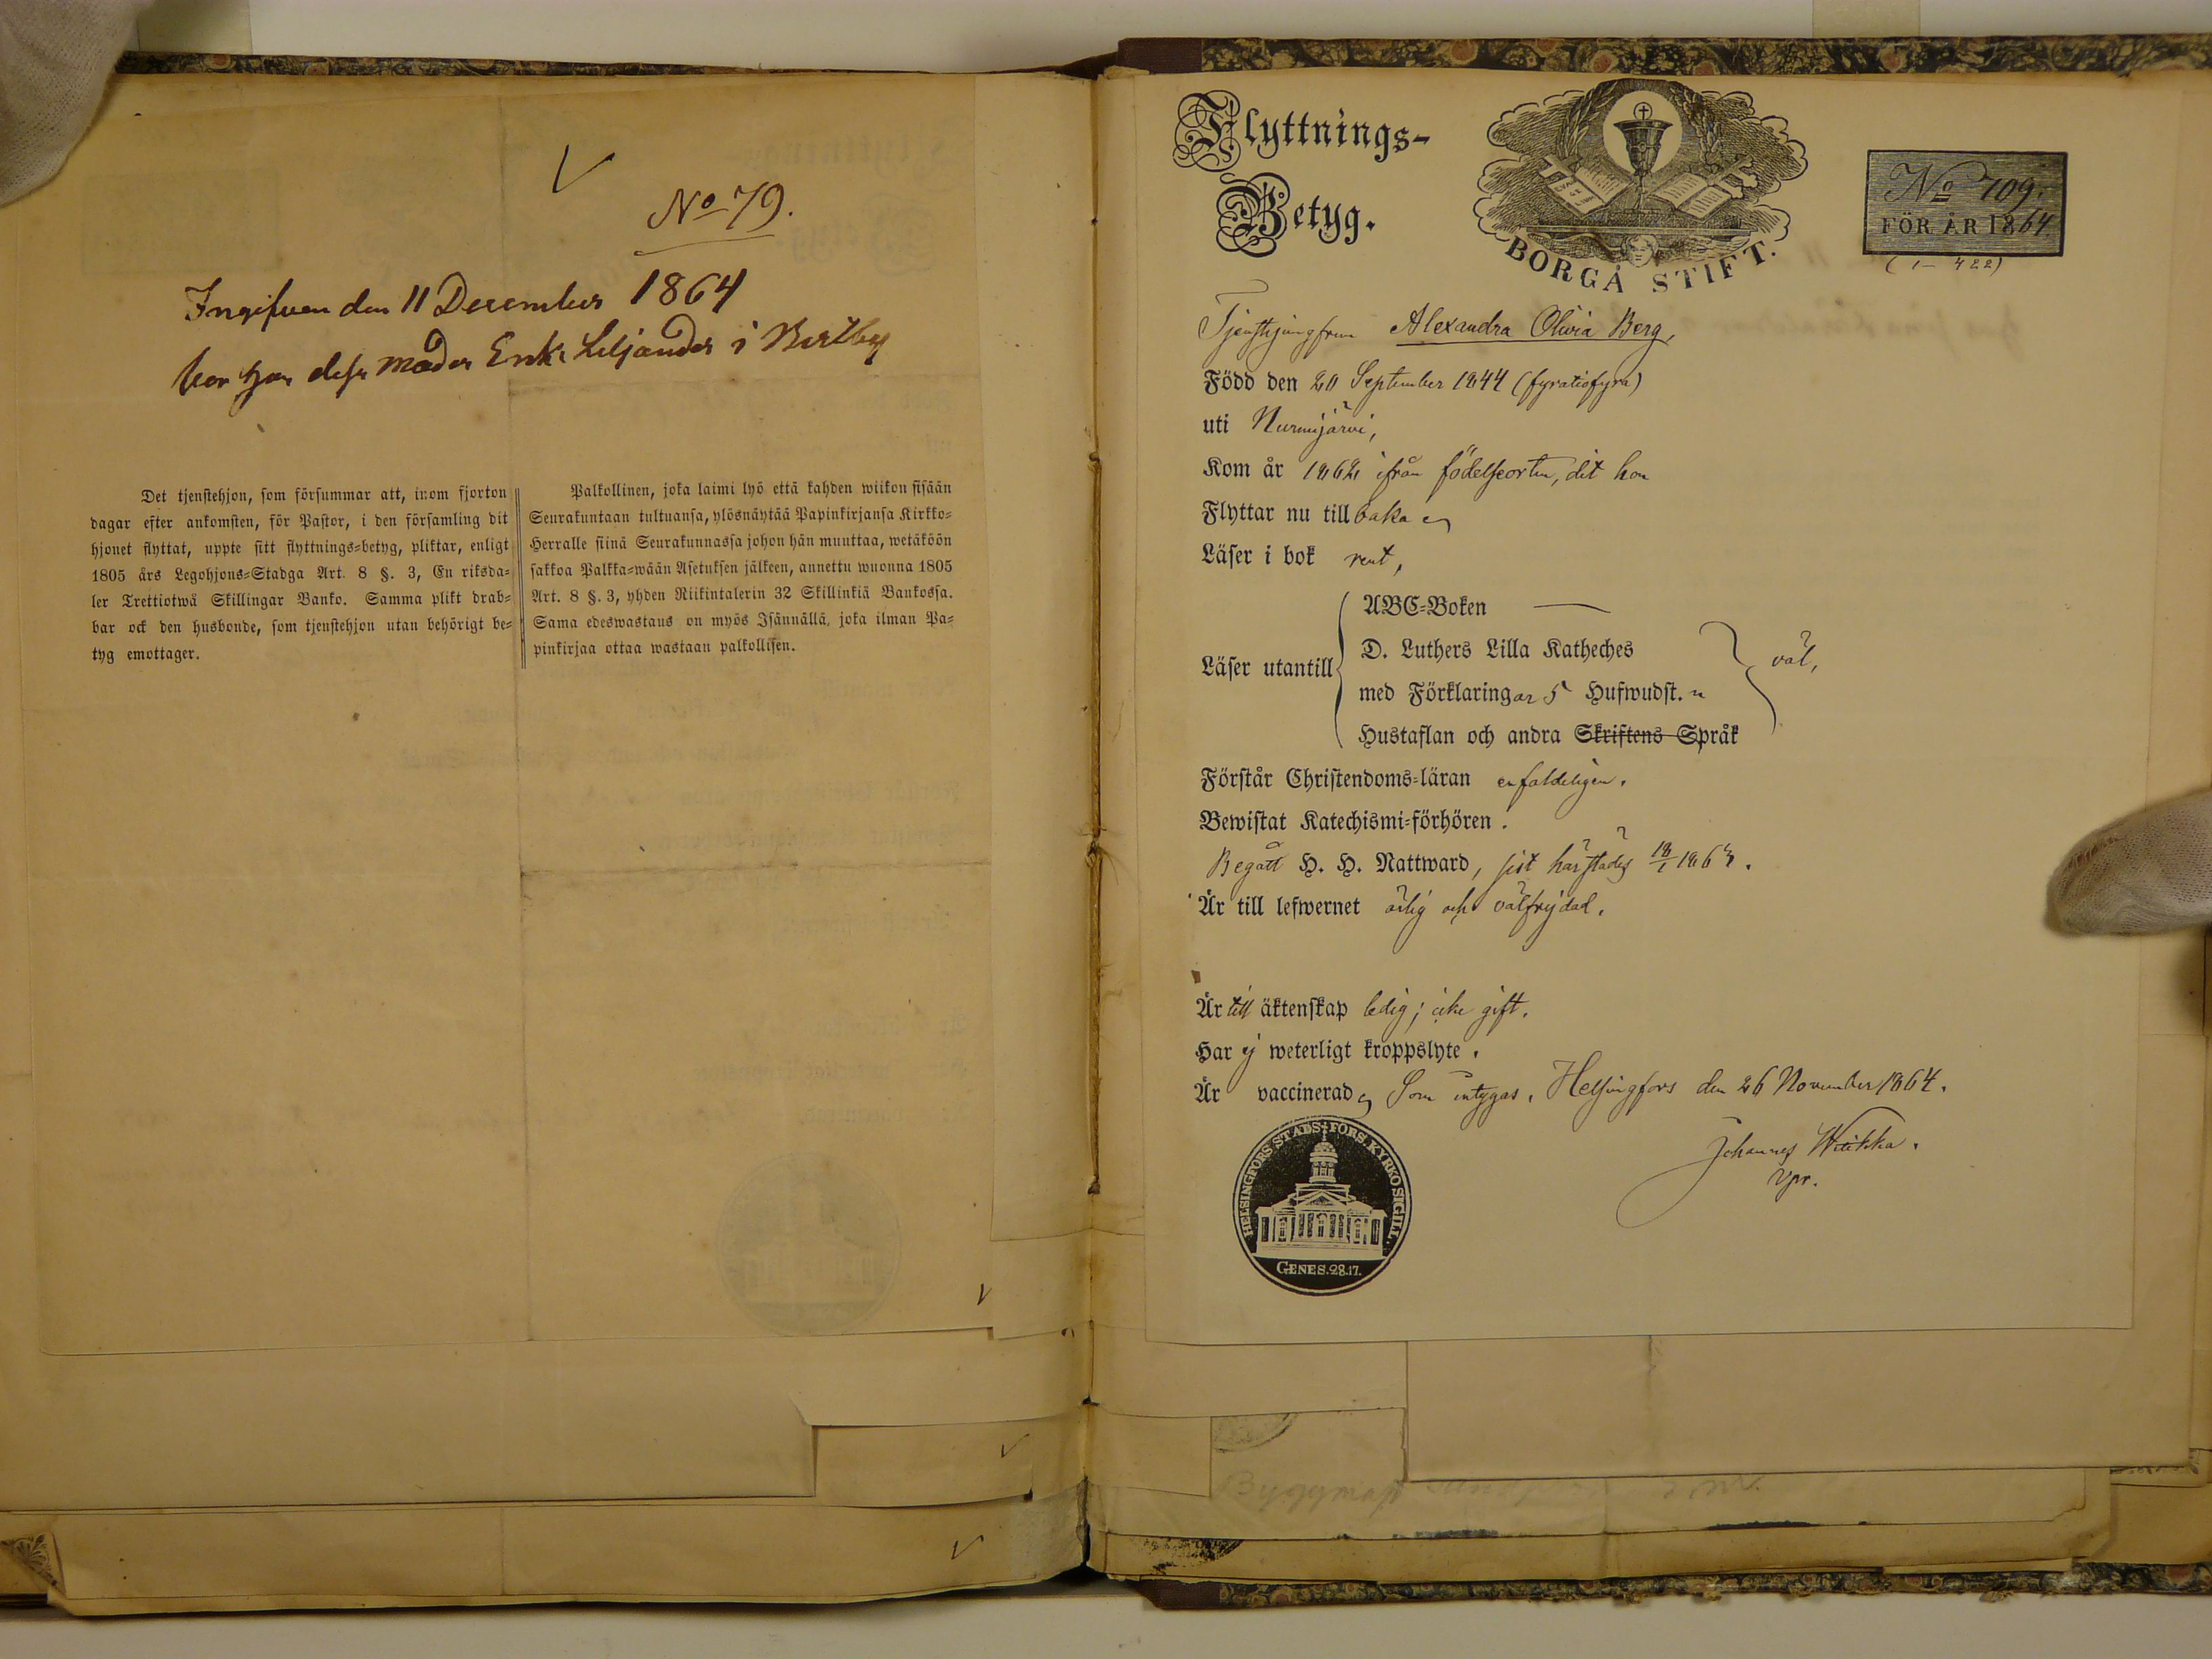 No 79.
Ingifven den 11 December 1864
bor hos dess moder Enk. Liljander i
Det tjenstehjon, som försummar att, inom fjorton
dagar efter ankomsten, för Pastor, i den församling dit
hjonet flyttat, uppte sitt flyttnings-betyg, pliktar, enligt
1805 års Legohjons-Stadga Art. 8 §. 3, En riksda-
ler Trettiotwå Skillingar Banko. Samma plikt drab-
bar ock den husbonde, som tjenstehjon utan behörigt be-
tyg emottager.
Palkollinen, joka laimi lyö että kahden wiikon sisään
Seurakuntaan tultuansa, ylösnäytää Papinkirjansa Kirkko-
Herralle siinä Seurakunnassa johon hän muuttaa, wetäköön
sakkoa Palkka-wään Asetuksen jälkeen, annettu wuonna 1805
Art. 8 §. 3, yhden Riikintalerin 32 Skillinkiä Bankossa.
Sama edeswastaus on myös Isännällä, joka ilman Pa-
pinkirjaa ottaa wastaan palkollisen.
Flyttnings-
Betyg.
BORGÅ STIFT.
No 709.
FÖR ÅR 1864.
(1-422)
Tjenstejungfrun Alexandra Olivia Berg,
Född den 20 September 1844 (fyratiofyra)
uti Nurmijärvi,
Kom år 1862 ifrån födelseorten, dit hon
Flyttar nu tillbaka
Läser i bok rent,
Läser utantill
ABC-Boken —
D. Luthers Lilla Katheches
med Förklaringar 5 Hufwudst.
Hustaflan och andra Skriftens Språk
väl,
Förstår Christendoms-läran enfaldeligen.
Bewistat Katechismi-förhören.
Begått H. H. Nattward, sist härstädes 18/1 1863.
Är till lefwernet ärlig och välfrejdad.
Är till äktenskap ledig; icke gift.
Har ej weterligt kroppslyte.
Är vaccinerad, Som intygas. Helsingfors den 26 November 1864.
Johannes
Vpr.
HELSINGFORS STADS FÖRS. KYRKO SIGILL.
GENES. 28.17.